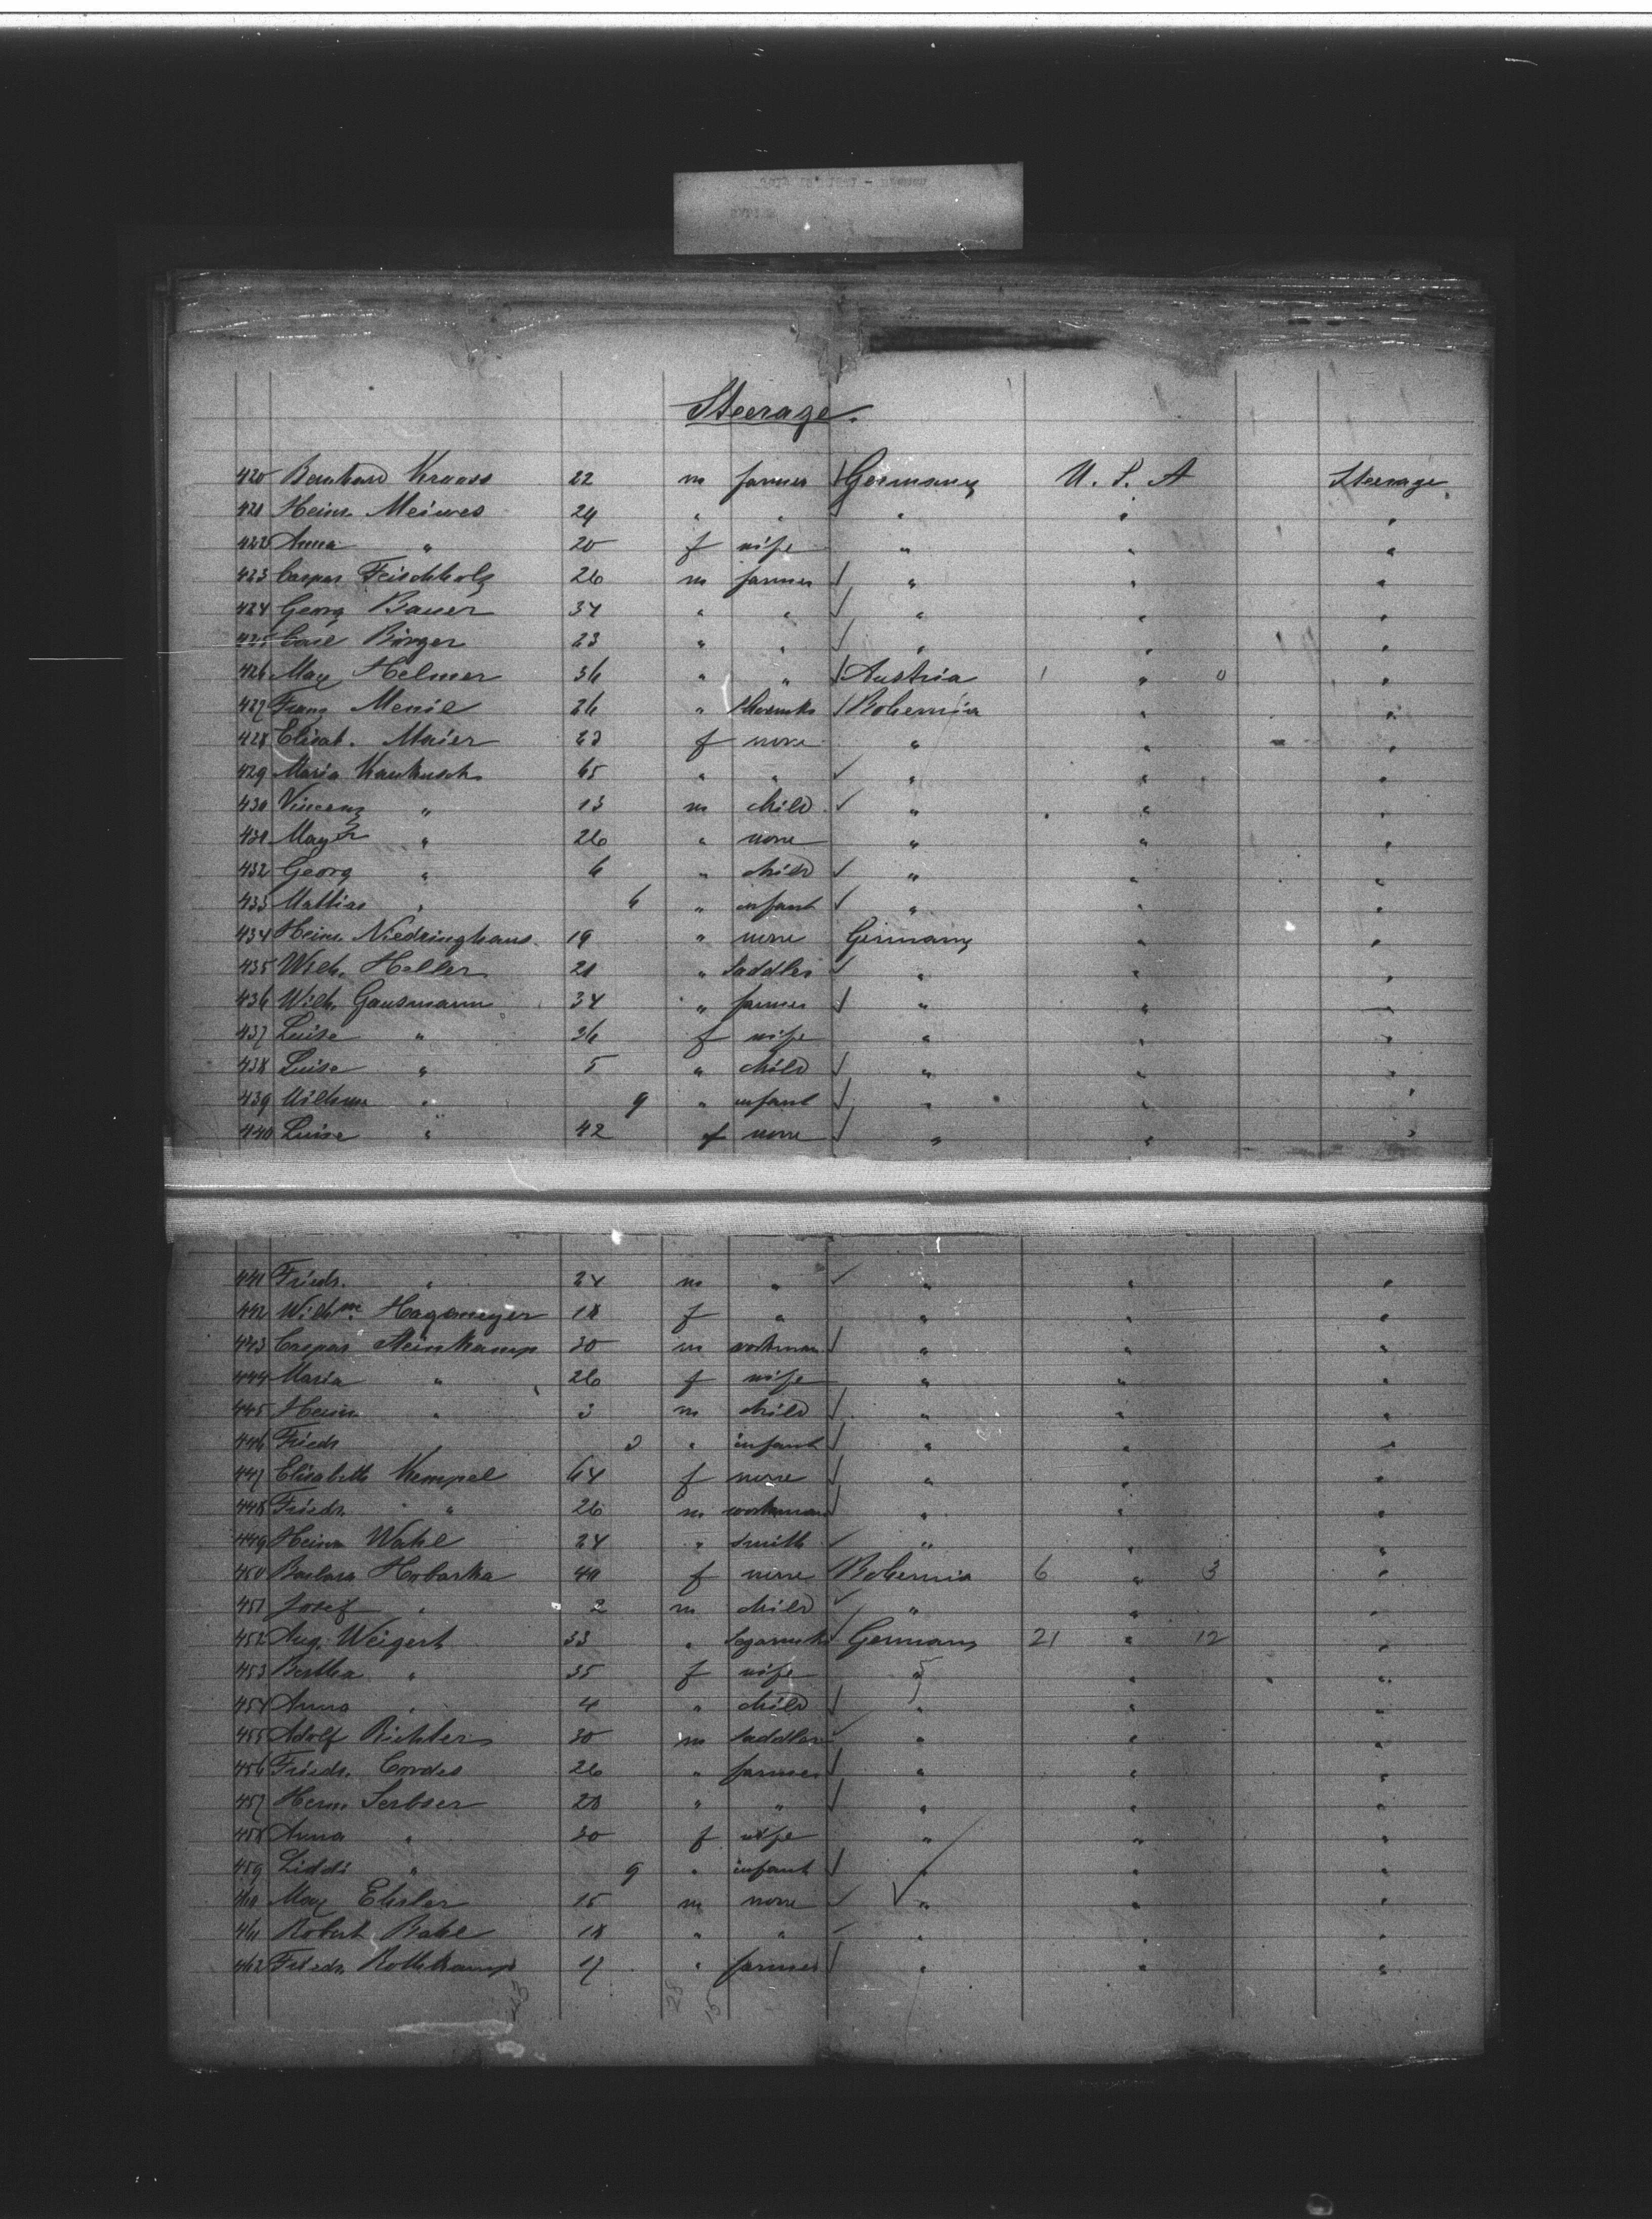 Steerage.
420 Bernhard Krauss 22 m farmer Germany U. S. A Steerage
421 Heinr. Meiwes 24 " " " " "
422 Anna " 20 f wife " " "
423 Caspar Feischholz 26 m farmer " " "
424 Georg Bauer 34 " " " " "
425 Carl Börger 23 " " " " "
426 Max Helmer 36 " " Austria 1 " 0 "
427 Franz Menil 26 " Bohemia " "
428 Elisab. Maier 23 f none " " "
429 Maria Kaukusch 65 " " " " "
430 Vincenz " 13 m child " " "
431 " 26 " none " " "
432 Georg " 6 " child " " "
433 Mathias " 6 " infant " " "
434 Heinr. Niedringhaus 19 " none Germany " "
435 Wilh. Heller 21 " saddler " " "
436 Wilh. Gausmann 34 " farmer " " "
437 Luise " 36 f wife " " "
438 Luise " 5 " child " " "
439 " 9 " infant " " "
440 Luise " 42 f none " " "
441 Friedr. " 24 m " " " "
442 Wilhme. Hagemeyer 18 f " " " "
443 Caspar Steinkamp 30 m workman " " "
444 Maria " 26 f wife " " "
445 Heinr. " 3 m child " " "
446 Friedr " 3 " infant " " "
447 Elisabeth Kempel 64 f none " " "
448 Friedr. " 26 m workman " " "
449 Heinr Wahl 24 " smith " " "
450 Barbara Hobarka 40 f none Bohemia 6 " 3 "
451 Josef " 2 m child " " "
452 Aug. Weigert 33 " Germany 21 " 12 "
453 Bertha " 35 f wife " " "
454 Anna " 4 " child " " "
455 Adolf Richter 30 m saddler " " "
456 Friedr. Cordes 26 " farmer " " "
457 Herm. Serbser 28 " " " " "
458 Anna " 30 f wife " " "
459 Liddi " 9 " infant " " "
460 Max Ehsler 15 m none " " "
461 Robert Bahl 18 " " " " "
462 Friedr. Rothkamp 17 " farmer " " "
43 28 15